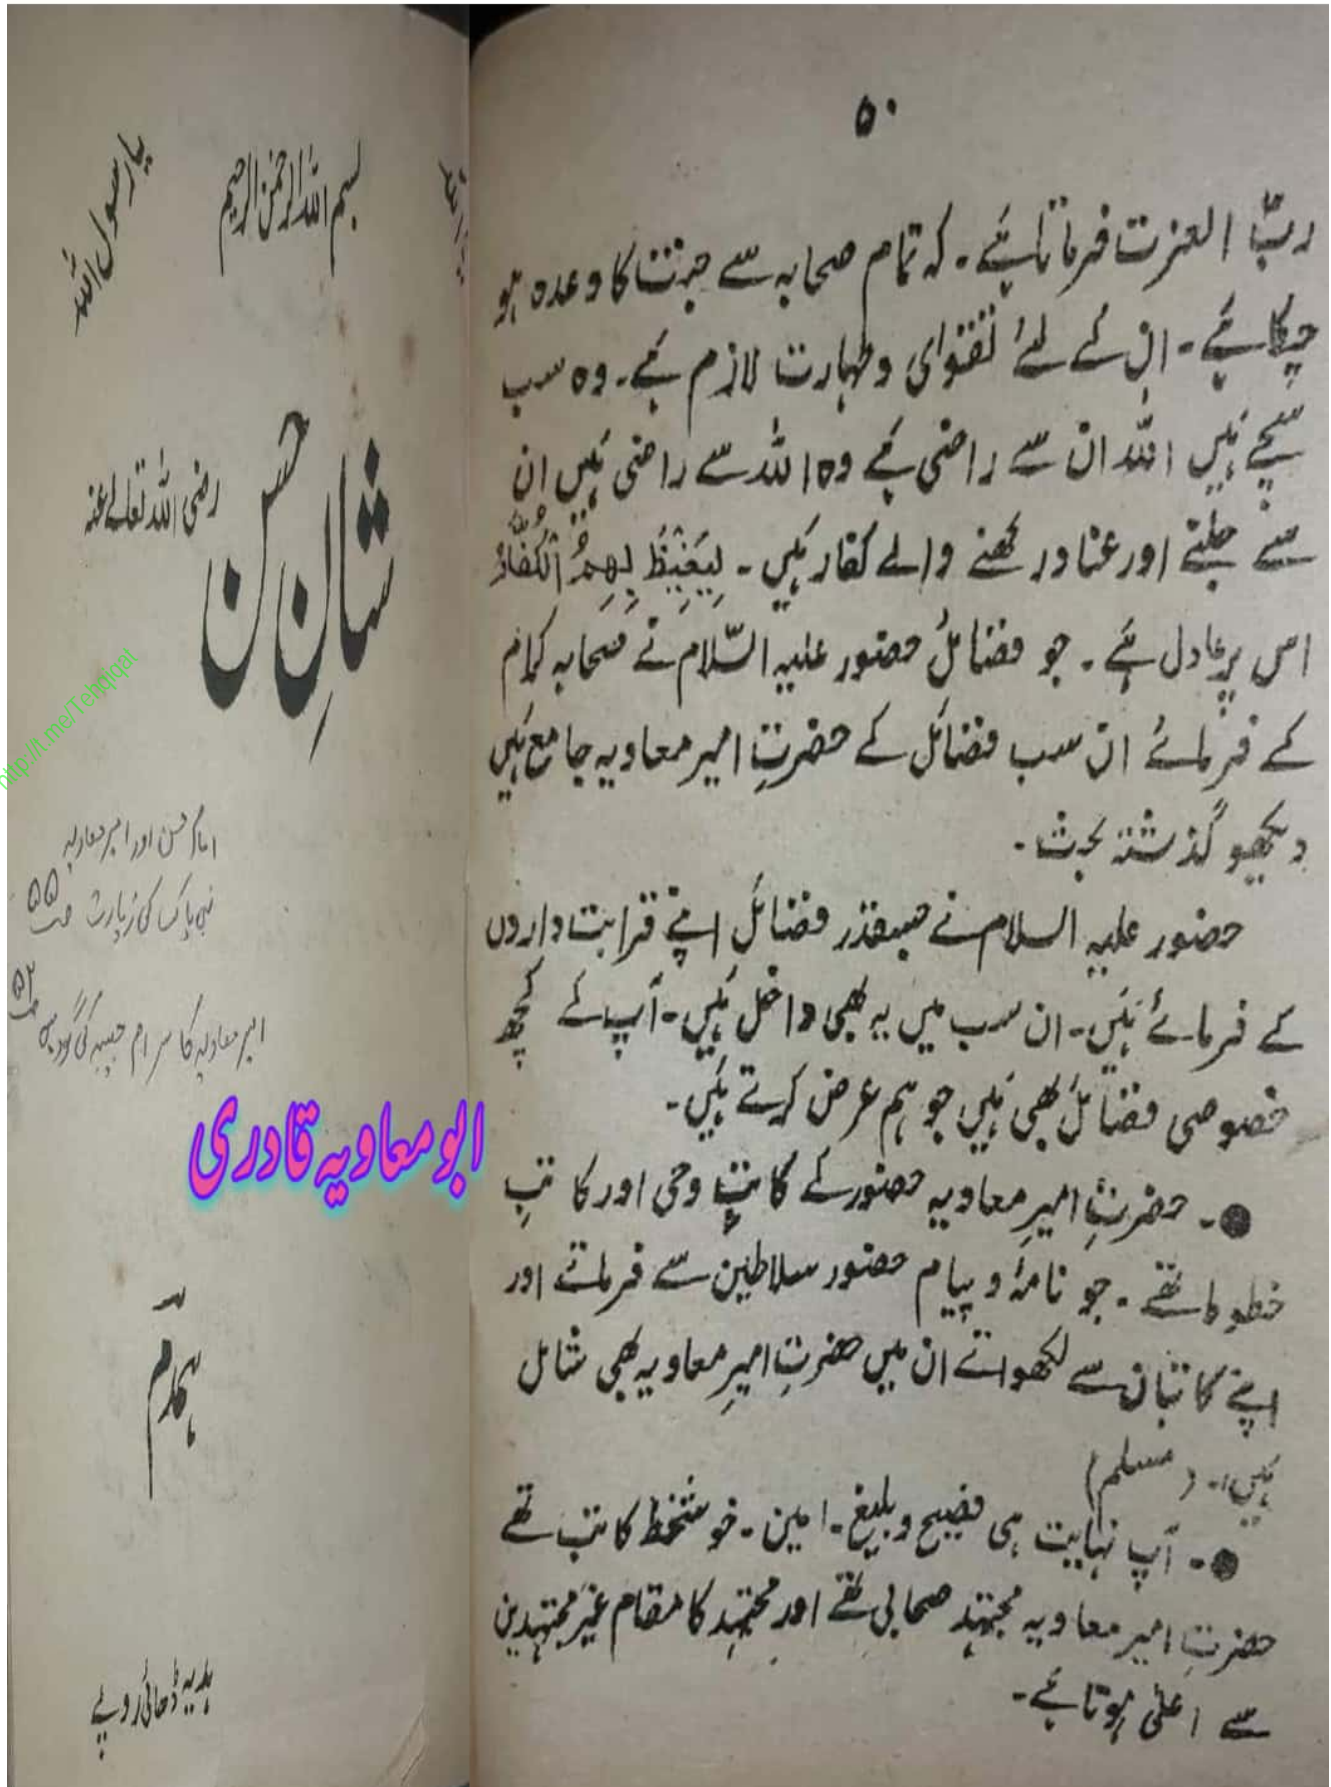 ۵۰
ربّ العزت فرماتا ہے۔ کہ تمام صحابہ سے جنت کا وعدہ ہو
چکا ہے۔ ان کے لئے تقوای و طہارت لازم ہے۔ وہ سب
سچے ہیں اللہ ان سے راضی ہے وہ اللہ سے راضی ہیں ان
سے جلتے اور عناد رکھنے والے کفار ہیں۔ لِیَغِیْظَ بِھِمُ الْکُفَّارَ
اس پر عادل ہے۔ جو فضائل حضور علیہ السّلام نے صحابہ کرام
کے فرمائے ان سب فضائل کے حضرتِ امیر معاویہ جامع ہیں
دیکھو گذشتہ بحث۔
حضور علیہ السلام نے جسقدر فضائل اپنے قرابت داروں
کے فرمائے ہیں۔ ان سب میں یہ بھی داخل ہیں۔ آپ کے کچھ
خصوصی فضائل بھی ہیں جو ہم عرض کرتے ہیں۔
●۔ حضرتِ امیرِ معاویہ حضور کے کاتبِ وحی اور کاتبِ
خطوط تھے۔ جو نامہٗ و پیام حضور سلاطین سے فرماتے اور
اپنے کاتبان سے لکھواتے ان میں حضرتِ امیرِ معاویہ بھی شامل
ہیں۔ (مسلم)
●۔ آپ نہایت ہی فصیح و بلیغ۔ امین۔ خوشخط کاتب تھے
حضرتِ امیر معاویہ مجتہد صحابی تھے اور مجتہد کا مقام غیر مجتہدین
سے اعلیٰ ہوتا ہے۔
بسم اللہ الرحمٰن الرحیم
یا رسول اللہ
شانِ حسن رضی اللہ تعالےٰ عنہ
http://t.me/Tehqiqat
امام حسن اور امیر معاویہ
نبی پاک کی زیارت ص ۵۵
امیر معاویہ کا سر ام حبیبہ کی گود میں ص ۵۲
ابو معاویہ قادری
ہمدم
ہدیہ ڈھائی روپے